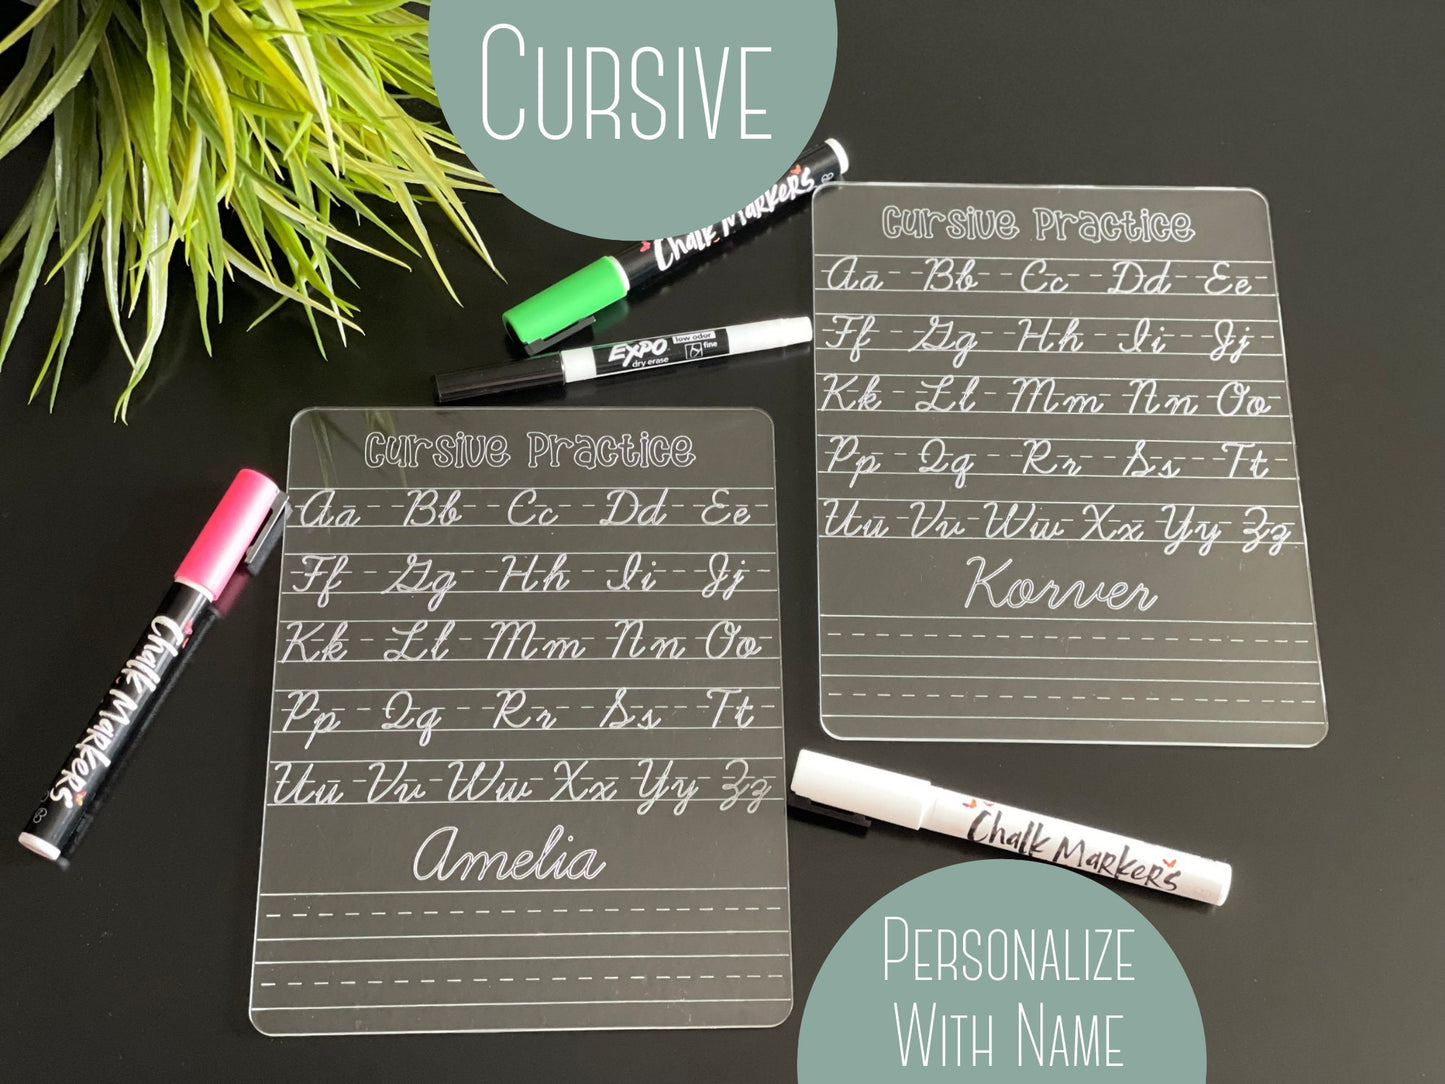 Cursive
Chalk Markers
EXPO
low odor
dry erase
fine
Cursive Practice
Aa Bb Cc Dd Ee
Ff Gg Hh Ii Jj
Kk Ll Mm Nn Oo
Pp Qq Rr Ss Tt
Uu Vv Ww Xx Yy Zz
Korver
Cursive Practice
Aa Bb Cc Dd Ee
Ff Gg Hh Ii Jj
Kk Ll Mm Nn Oo
Pp Qq Rr Ss Tt
Uu Vv Ww Xx Yy Zz
Amelia
Chalk Markers
Chalk Markers
Personalize
With Name